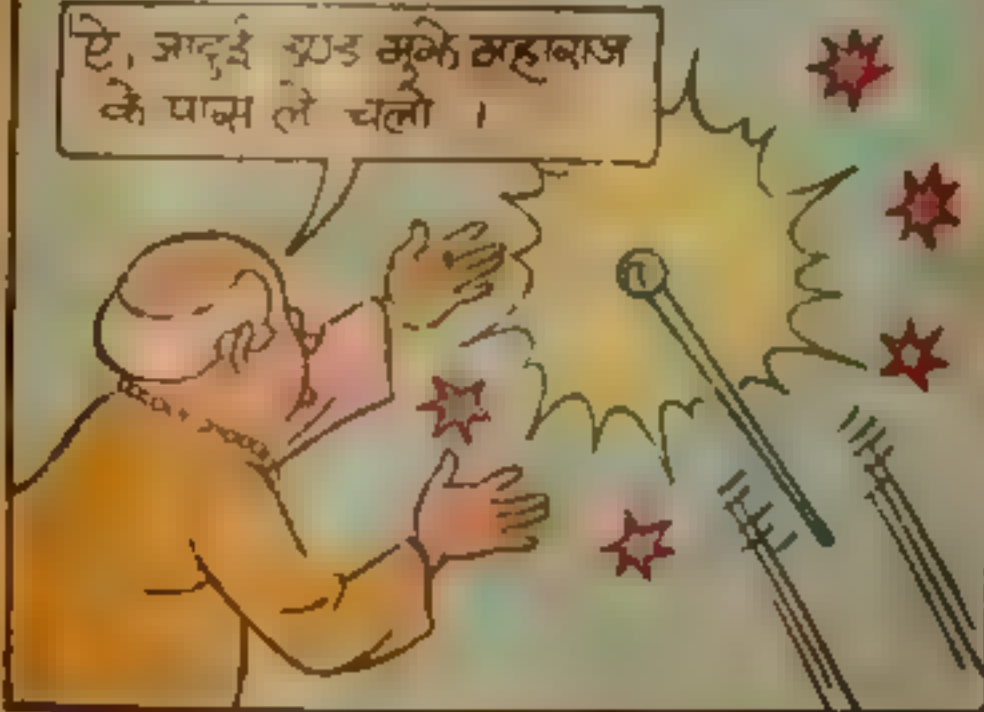 ऐ, जादुई डण्ड मुझे महाराज
के पास ले चलो ।